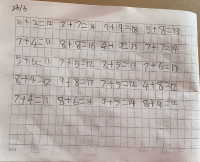 23/3
10+2=12 7+7=14 9+9=18 5+8=13
7+4=11 8+8=16 4+9=13 7+7=14
5+6=11 7+5=12 8+5=13 7+6=13
8+4=12 9+8=17 7+5=12 7+6=13
7+4=11 8+6=14 9+5=14 8+4=12